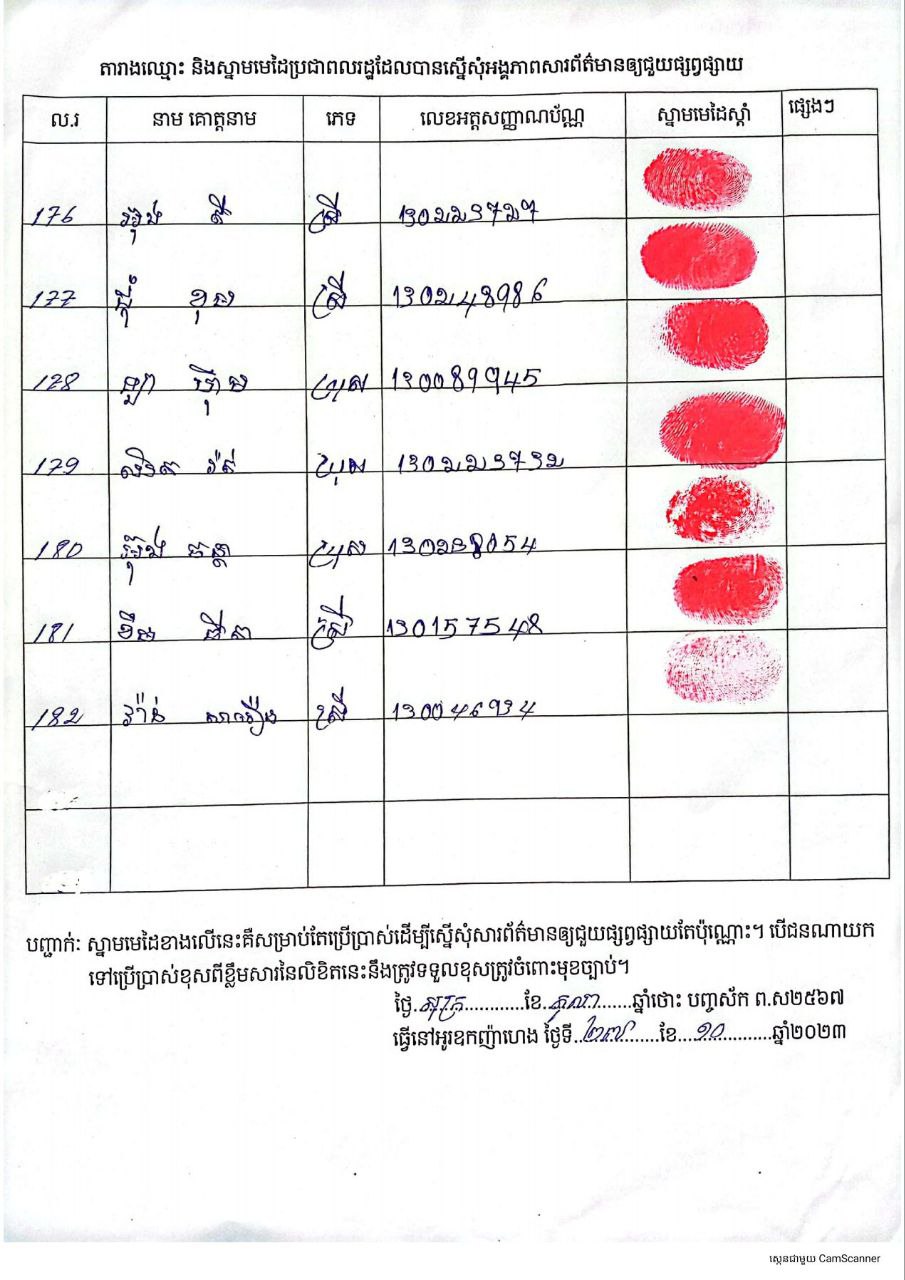 តារាងឈ្មោះ និងស្នាមមេដៃប្រជាពលរដ្ឋដែលបានស្នើសុំអង្គភាពសារព័ត៌មានឲ្យជួយផ្សព្វផ្សាយ
ល.រ នាម គោត្តនាម ភេទ លេខអត្តសញ្ញាណប័ណ្ណ ស្នាមមេដៃស្តាំ ផ្សេងៗ
176 ស្រី 130223727
177 ជុំ ខុស ស្រី 130248986
178 ប្រុស 130089945
179 ប្រុស 130223732
180 ប្រុស
181 ស្រី 130157548
182 វ៉ាន់ សារឿង ស្រី 130046934
បញ្ជាក់: ស្នាមមេដៃខាងលើនេះគឺសម្រាប់តែប្រើប្រាស់ដើម្បីស្នើសុំសារព័ត៌មានឲ្យជួយផ្សព្វផ្សាយតែប៉ុណ្ណោះ។ បើជនណាយក
ទៅប្រើប្រាស់ខុសពីខ្លឹមសារនៃលិខិតនេះនឹងត្រូវទទួលខុសត្រូវចំពោះមុខច្បាប់។
ថ្ងៃ.សុក្រ............ខែ.តុលា.......ឆ្នាំថោះ បញ្ចស័ក ព.ស២៥៦៧
ធ្វើនៅអូរឧកញ៉ាហេង ថ្ងៃទី..២៧.......ខែ....១០...........ឆ្នាំ២០២៣
ស្កេនជាមួយ CamScanner